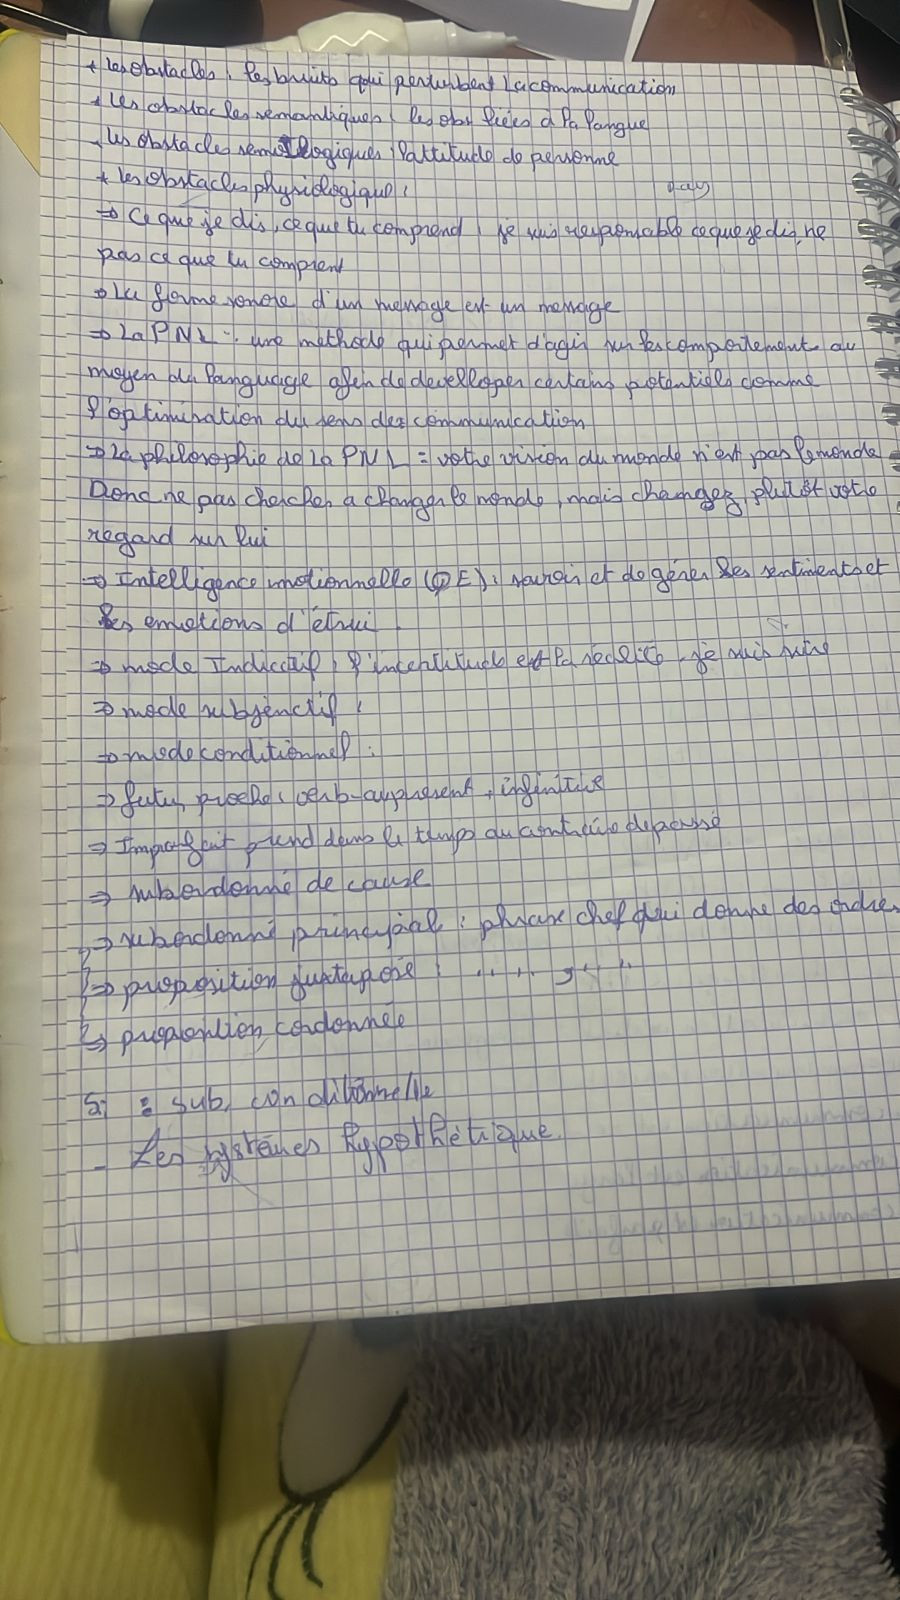 + les obstacles : les bruits qui perturbent La communication
+ les obstacles semantiques : les obs liées à la langue
les obstacles semiologiques l'attitude de personne
+ les obstacles physiologique :
⇒ Ce que je dis, ce que tu comprend, je suis responsable ce que je dis, ne
pas ce que tu comprent
⇒ La forme sonore d'un message est un message
⇒ La PNL : une méthode qui permet d'agir sur les comportement au
moyen du language afin de develloper certains potentiels comme
l'optimisation du sens des communication
⇒ La philosophie de La PNL = votre vision du monde n'est pas le monde
Donc ne pas chercher a changer le monde, mais changez plutôt votre
regard sur lui
⇒ Intelligence imotionnelle (QE) : savoir et de gérer ses sentiments et
les emotions d'étrui
⇒ mode Indicatif : l'incertitude est la realité. je suis sûre
⇒ mode subjenctif :
⇒ mode conditionnel :
⇒ futur proche : verb-au présent + infinitive
⇒ Imparfait prend dans le temps au contraire de passé
⇒ subordonné de cause
⇒ subordonné principal : phrase chef qui donne des ordres
⇒ proposition juxtaposé : " " , " "
↳ proposition cordonnée
Si : sub, conditionnelle
- Les systèmes hypothétique.